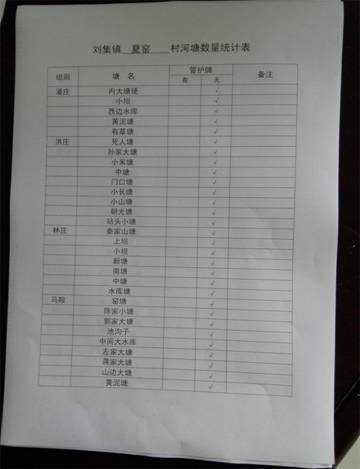 刘集镇 夏窑 村河塘数量统计表
组别 塘 名 管护牌 备注
有 无
潘庄 内大塘埂 √
小坝 √
西边水库 √
黄泥塘 √
有草塘 √
洪庄 死人塘 √
孙家大塘 √
小米塘 √
中塘 √
门口塘 √
小长塘 √
小山塘 √
朝光塘 √
站头小塘 √
林庄 秦家山塘 √
上坝 √
小坝 √
新塘 √
南塘 √
中塘 √
水库塘 √
马鞍 窑塘 √
陈家小塘 √
郭家大塘 √
池沟子 √
中间大水库 √
左家大塘 √
蒋家大塘 √
山边大塘 √
黄泥塘 √